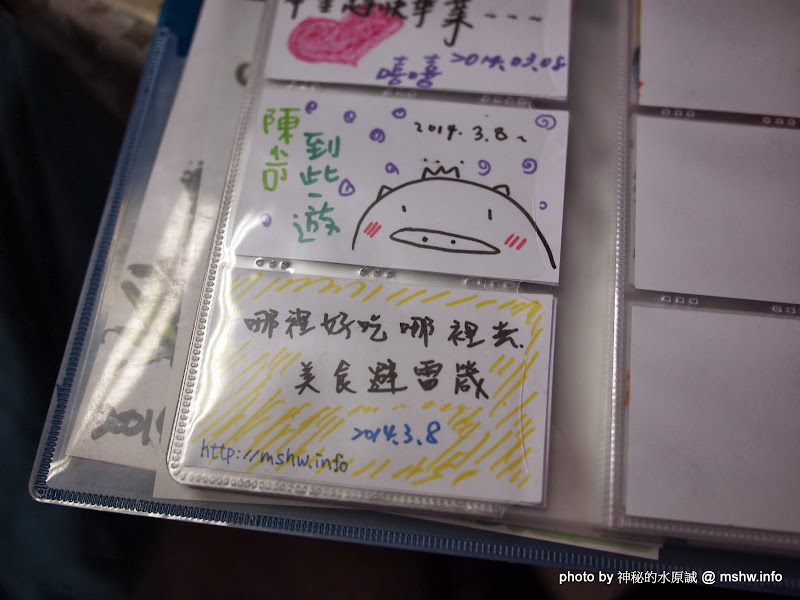 嘻嘻 2014.03.08
陳小郃
到此一遊
2014.3.8~
哪裡好吃哪裡去.
美食避雷箴
2014.3.8
http://mshw.info
photo by 神秘的水原誠 @ mshw.info